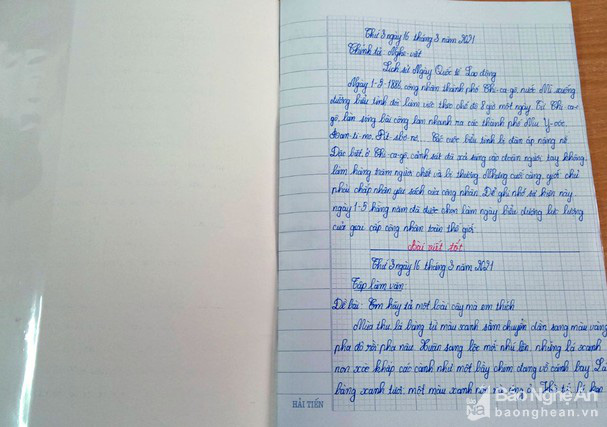 Thứ 3 ngày 16 tháng 3 năm 2021
Chính tả: Nghe viết
Lịch sử Ngày Quốc tế Lao động
Ngày 1-5-1886, công nhân thành phố Chi-ca-gô, nước Mĩ xuống
đường biểu tình đòi làm việc theo chế độ 8 giờ một ngày. Từ Chi-ca-
gô, làn sóng bãi công lan nhanh ra các thành phố Niu Y-oóc,
Ban-ti-mo, Pít-sbơ-nơ... Các cuộc biểu tình bị đàn áp nặng nề.
Đặc biệt, ở Chi-ca-gô, cảnh sát đã xả súng vào đoàn người tay không,
làm hàng trăm người chết và bị thương. Nhưng cuối cùng, giới chủ
phải chấp nhận yêu sách của công nhân. Để ghi nhớ sự kiện này
ngày 1-5 hằng năm đã được chọn làm ngày biểu dương lực lượng
của giai cấp công nhân toàn thế giới.
Bài viết tốt
Thứ 3 ngày 16 tháng 3 năm 2021
Tập làm văn:
Đề bài: Em hãy tả một loài cây mà em thích
Mùa thu lá bàng từ màu xanh sẫm chuyển dần sang màu vàng
pha đỏ rồi pha nâu. Xuân sang lộc mới nhú lên, những lá xanh
non xòe khắp các cành như một bầy chim đang vỗ cánh bay. Lá
bàng xanh tươi một màu xanh non
HẢI TIẾN
Báo Nghệ An
baonghean.vn